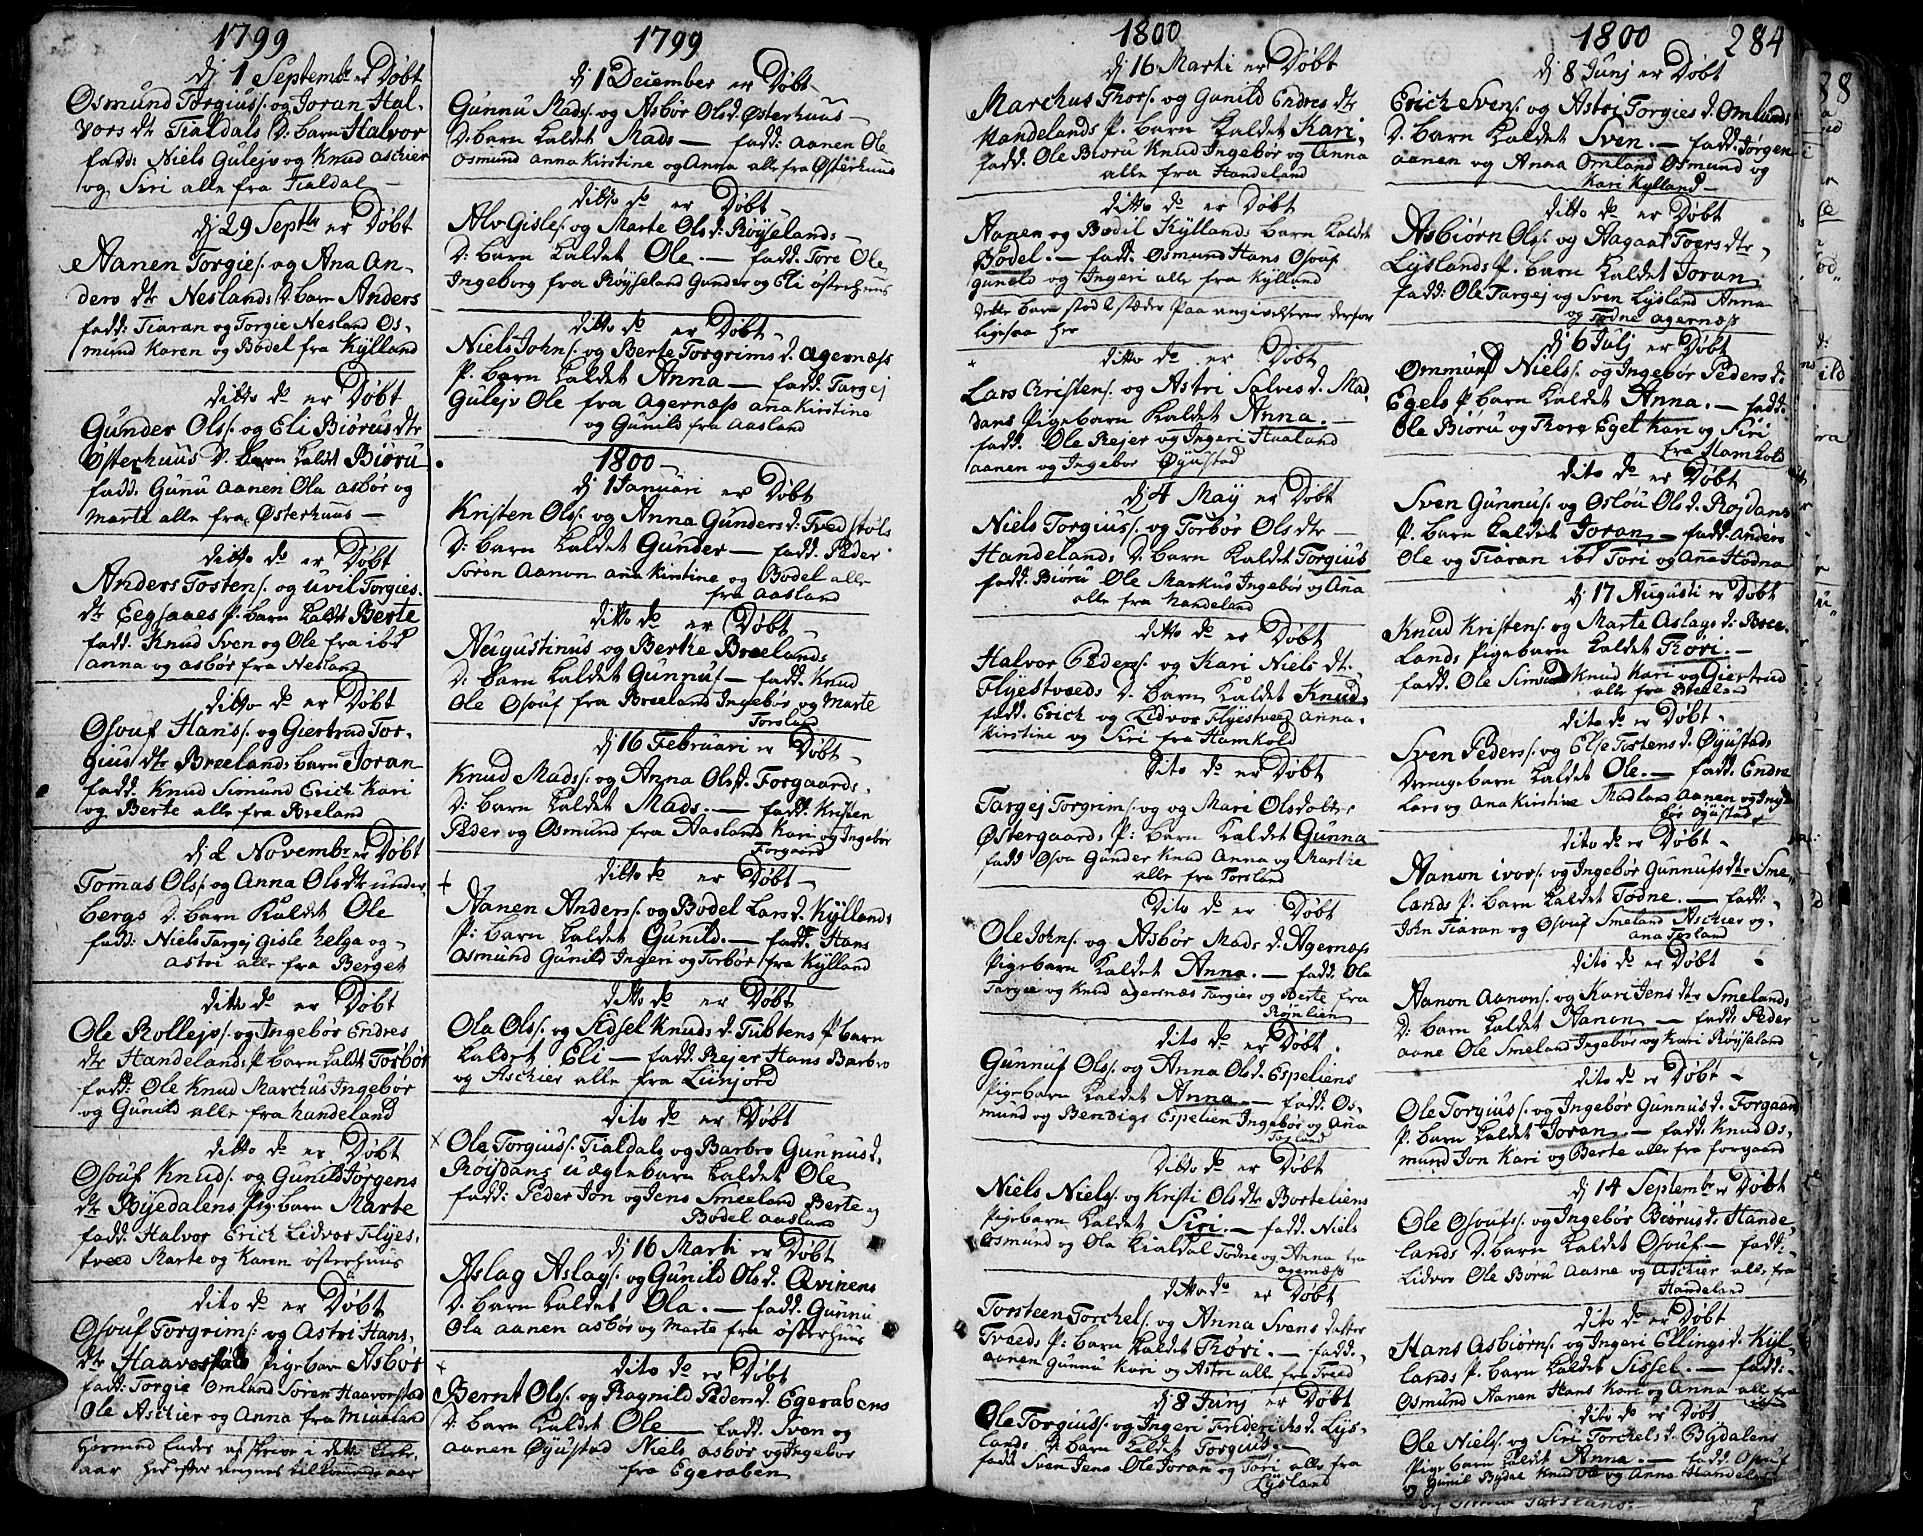 1799
dj 1 Septembr er Døbt
Osmund Torgius/: og Joran Hal-
vors dtr Tialdals D: barn Halvor
fadd: Niels Gulejv og Knud Aschier
og Siri alle fra Tialdal
dj 29 Septbr er Døbt
Aanen Torgies/: og Ana An-
ders dtr Neslands D: barn Anders
fadd: Tiaran og Torgie Nesland Os-
mund Karen og Bodel fra Kylland
ditto do er Døbt
Gunder Ols/: og Eli Biørus dtr
Østerhuus D barn kaldt Biøru
fadd: Gunu aanen Ola asbør og
Marte alle fra Østerhuus
ditto do er Døbt
Anders Tostens/: og uvil Torgies
dtr Eegsaaes P: barn kaldt Berte
fadd: Knud Sven og Ole fra ibd
anna og asbør fra Nesland
ditto do er Døbt
Osouf Hans/: og Giertrud Tor-
gius dtr Breelands barn Joran
fadd: Knud Simund Erich Kari
og Berte alle fra Breland
dj 2 Novembr er Døbt
Tomas Ols/: og Anna Ols dtr under
bergs D: barn kaldet Ole
fadd: Niels Targej Gisle helga og
astri alle fra Berget
ditto do er Døbt
Ole Rollejvs/: og Ingebør Endres
dtr Handelands P barn kaldt Torbør
fadd: Ole Knud Marchus Ingebør
og Gunild alle fra handeland
ditto do er Døbt
Osouf Knuds/: og Gunild Jørgens
dtr Byedalens Pige barn Marte
fadd: Halvor Erich Lidvor Flyes-
tveed Marte og Karen østerhuus
dito do er Døbt
Osouf Torgrims/: og Astri Hans
dtr Haavorstads Pigebarn Asbør
fadd: Torgie Omland Søren Haavorstad
Ole Aschier og Anna fra
1799
dj 1 December er Døbt
Gunnu Mads/: og Asbør Ols d. Østerhuus
D: barn kaldet Mads — fadd: aanen Ole
osmund anna Kirstine og Anna alle fra Østerhuus
ditto do er Døbt
Alv Gisles/: og Marte Ols d: Røyselands
D: barn kaldet Ole. — fadd: Tore Ole
Ingeborg fra Røyseland Gunder og Eli østerhuus
ditto do er Døbt
Niels Johns/: og Berte Torgrims d. agernæss
P. barn kaldet Anna — fadd. Targej
Gulejv Ole fra agernæss ana Kirstine
og Gunild fra Aasland
1800
dj 1 Januari er Døbt
Kristen Ols/: og Anna Gunders d: Tvedstøls
D: barn kaldet Gunder — fadd: Peder
Søren Aanon ana Kirstine og Bodel alle
fra Aasland
ditto do er Døbt
Augustinus og Berthe Breelands
D: barn kaldet Gunnuf — fadd: Knud
Ole Osouf fra Breeland Ingebør og Marte
Torsland
dj 16 Februari er Døbt
Knud Mads/: og Anna Ols d. Forgaards
D: barn kaldet Mads. — fadd: Kristen
Peder og Osmund fra Aasland Kari og Ingebør
Forgaard
ditto do er Døbt
Aanen Anders/: og Bodel Lars d. Kyllands
P: barn kaldet Gunild. — fadd: Hans
Osmund Gunild Ingeri og Torbør fra Kylland
ditto do er Døbt
Ola Ols/: og Sidsel Knuds d: Tubtens P barn
kaldet Eli — fadd: Rejer Hans Barbro
og Aschier alle fra Liinjord
dito do er Døbt
Ole Torgius/: Tialdals og Barbro Gunnus d.
Røysdans uægte barn kaldet Ole
fadd: Peder Jon og Jens Smeeland Berte og
Bodel aasland
dj 16 Marti er Døbt
Aslag Aslags/: og Gunild Ols d. Qvinens
D. barn kaldet Ola. — fadd. Gunnu
Ola aanen asbør og Marte fra østerhuus
dito do er Døbt
Bernt Ols/: og Ragnild Peders d. Egerabens
D: barn kaldet Ole — fadd: Sven og
aanen Øyustad Niels asbør og Ingebor
fra Egeraben
1800
dj 16 Marti er Døbt
Marchus Thors/: og Gunild Endres dtr
Handelands P. barn kaldet Kari.
fadd: Ole Biøru Knud Ingebør og Anna
alle fra Handeland
ditto do er Døbt
Aanen og Bodil Kyllands barn kaldet
Bodel. — fadd: Osmund Hans Osouf
gunild og Ingeri alle fra Kylland
dette barn stod 2 stæder paa angivelsen derfor
ligesaa her
ditto do er Døbt
Lars Cristens/: og Astri Salves d. Mad
dans Pigebarn kaldet Anna. —
fadd. Ole Rejer og Ingeri Haaland
aanen og Ingebor Øyustad
dj 4 May er Døbt
Niels Torgius/: og Torbør Ols dtr
Handelands D: barn kaldet Torgius
fadd: Biøru Ole Markus Ingebør og Ana
alle fra Handeland
ditto do er Døbt
Halvor Peders/: og Kari Niels dtr
Flyestveeds D: barn kaldet Knud.
fadd: Erich og Lidvor Flyestveed Anna-
Kirstine og Siri fra Hamkold
Dito do er Døbt
Targej Torgrims/: og og Mari Ols dotter
Østergaards P: barn kaldet Gunna
fadd Osva Gunder Knud Anna og Marthe
alle fra Torsland
Dito do er Døbt
Ole Johns/: og Asbør Mads d: Agernæss
Pigebarn kaldet Anna. — fadd: Ola
Targie og Knud agernæs Targier og Berte fra
Røinlien
dito do er Døbt.
Gunnuf Ols/: og Anna Ols d: Espeliens
Pigebarn kaldet Anna. — fadd: Os-
mund og Bendigt Espelien Ingebør og Ana
Torsland
Ditto do er Døbt
Niels Niels/: og Kristi Ols dtr Borteliens
Pigebarn kaldet Siri. — fadd: Niels
Osmund og Ola Tialdal Todne og Anna fra
agernæss
ditto do er Døbt
Torsteen Torchels/: og Anna Svens datter
Tveeds P: barn kaldet Thori. — fadd:
aanen Gunnu Kari og Astri alle fra Tveed
dj 8 Junj er Døbt
Ole Torgius/: og Ingeri Frederichs d: Lys-
lands D: barn kaldet Torgius. —
fadd Sven Jens Ole Joran og Tori alle fra
Lysland
1800 284
dj 8 Junj er Døbt
Erich Svens/: og Astri Torgies d. Omlands
D. barn kaldet Sven. — fadd: Jørgen
aanen og Anna Omland Osmund og
Kari Kylland
ditto do er Døbt
Asbiørn Ols/: og Aagaat Toers dtr
Lyslands P. barn kaldet Joran
fadd: Ole Targej og Sven Lysland Anna
og Todne agernæss
dj 6 Julj er Døbt
Ommund Niels/: og Ingebør Peders d:
Egels P. barn kaldet Anna. — fadd:
Ole Biøru og Thore Eget Kari og Siri
fra Hamkold
dito do er Døbt
Sven Gunnus/: og Oslou Ols d. Rojdans
P. barn kaldet Joran — fadd: Anders
Ole og Tiaran ibd Tori og Ana Hodna
dj 17 Augusti er Døbt
Knud Kristens/: og Marte Aslags d: Bree-
lands Pigebarn kaldet Thori. —
fadd: Ole Simund Knud Kari og Giertrud
alle fra Breeland
dito do er Døbt
Sven Peders/: og Else Tostens d. Øyustads
Drengebarn kaldet Ole. — fadd: Endre
Lars og Ana Kirstine Madland Aanen og Inge
bør Øyustad
dito do er Døbt
Aanon ivors/: og Ingebør Gunnufs dtr Sme-
lands P. barn kaldet Todne. — fadd:
John Tiaran og Osouf Smeland Aschier og
ana Torsland
dito do er Døbt
Aanon Aanons/: og Kari Jens dtr Smelands
D: barn kaldet Aanon — fadd: Peder
aane Ole Smeland Ingebør og Kari Røysseland
dito do er Døbt
Ole Torgius/: og Ingebør Gunnus d. Forgaard
P. barn kaldet Joran. — fadd: Knud Os-
mund Jon Kari og Berte alle fra forgaard
dj 14 Septembr er Døbt
Ole Osoufs/: og Ingebør Biørus d: Hande-
lands D. barn kaldet Osouf. — fadd:
Lidvor Ole Børu Aasne og Aschier alle fra
Handeland
dito do er Døbt
Hans Asbiørns/: og Ingeri Ellings d: Kyl-
lands P. barn kaldet Sissel. — fadd:
Osmund Aanen Hans Kari og Anna alle fra
dito do er Døbt
Ole Niels/: og Siri Torchels d. Bydalens
Pige barn kaldet Anna. — fadd: Osouf
og Gunil Bydal Knud Ole og Anna Handeland